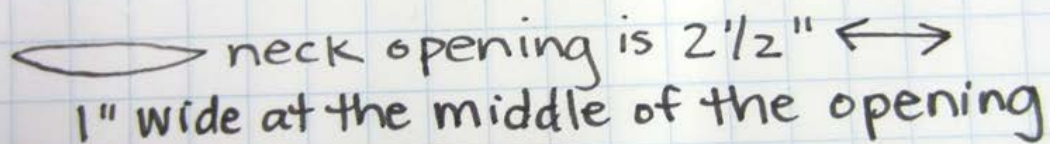 neck opening is 2 1/2" ↔
1" wide at the middle of the opening